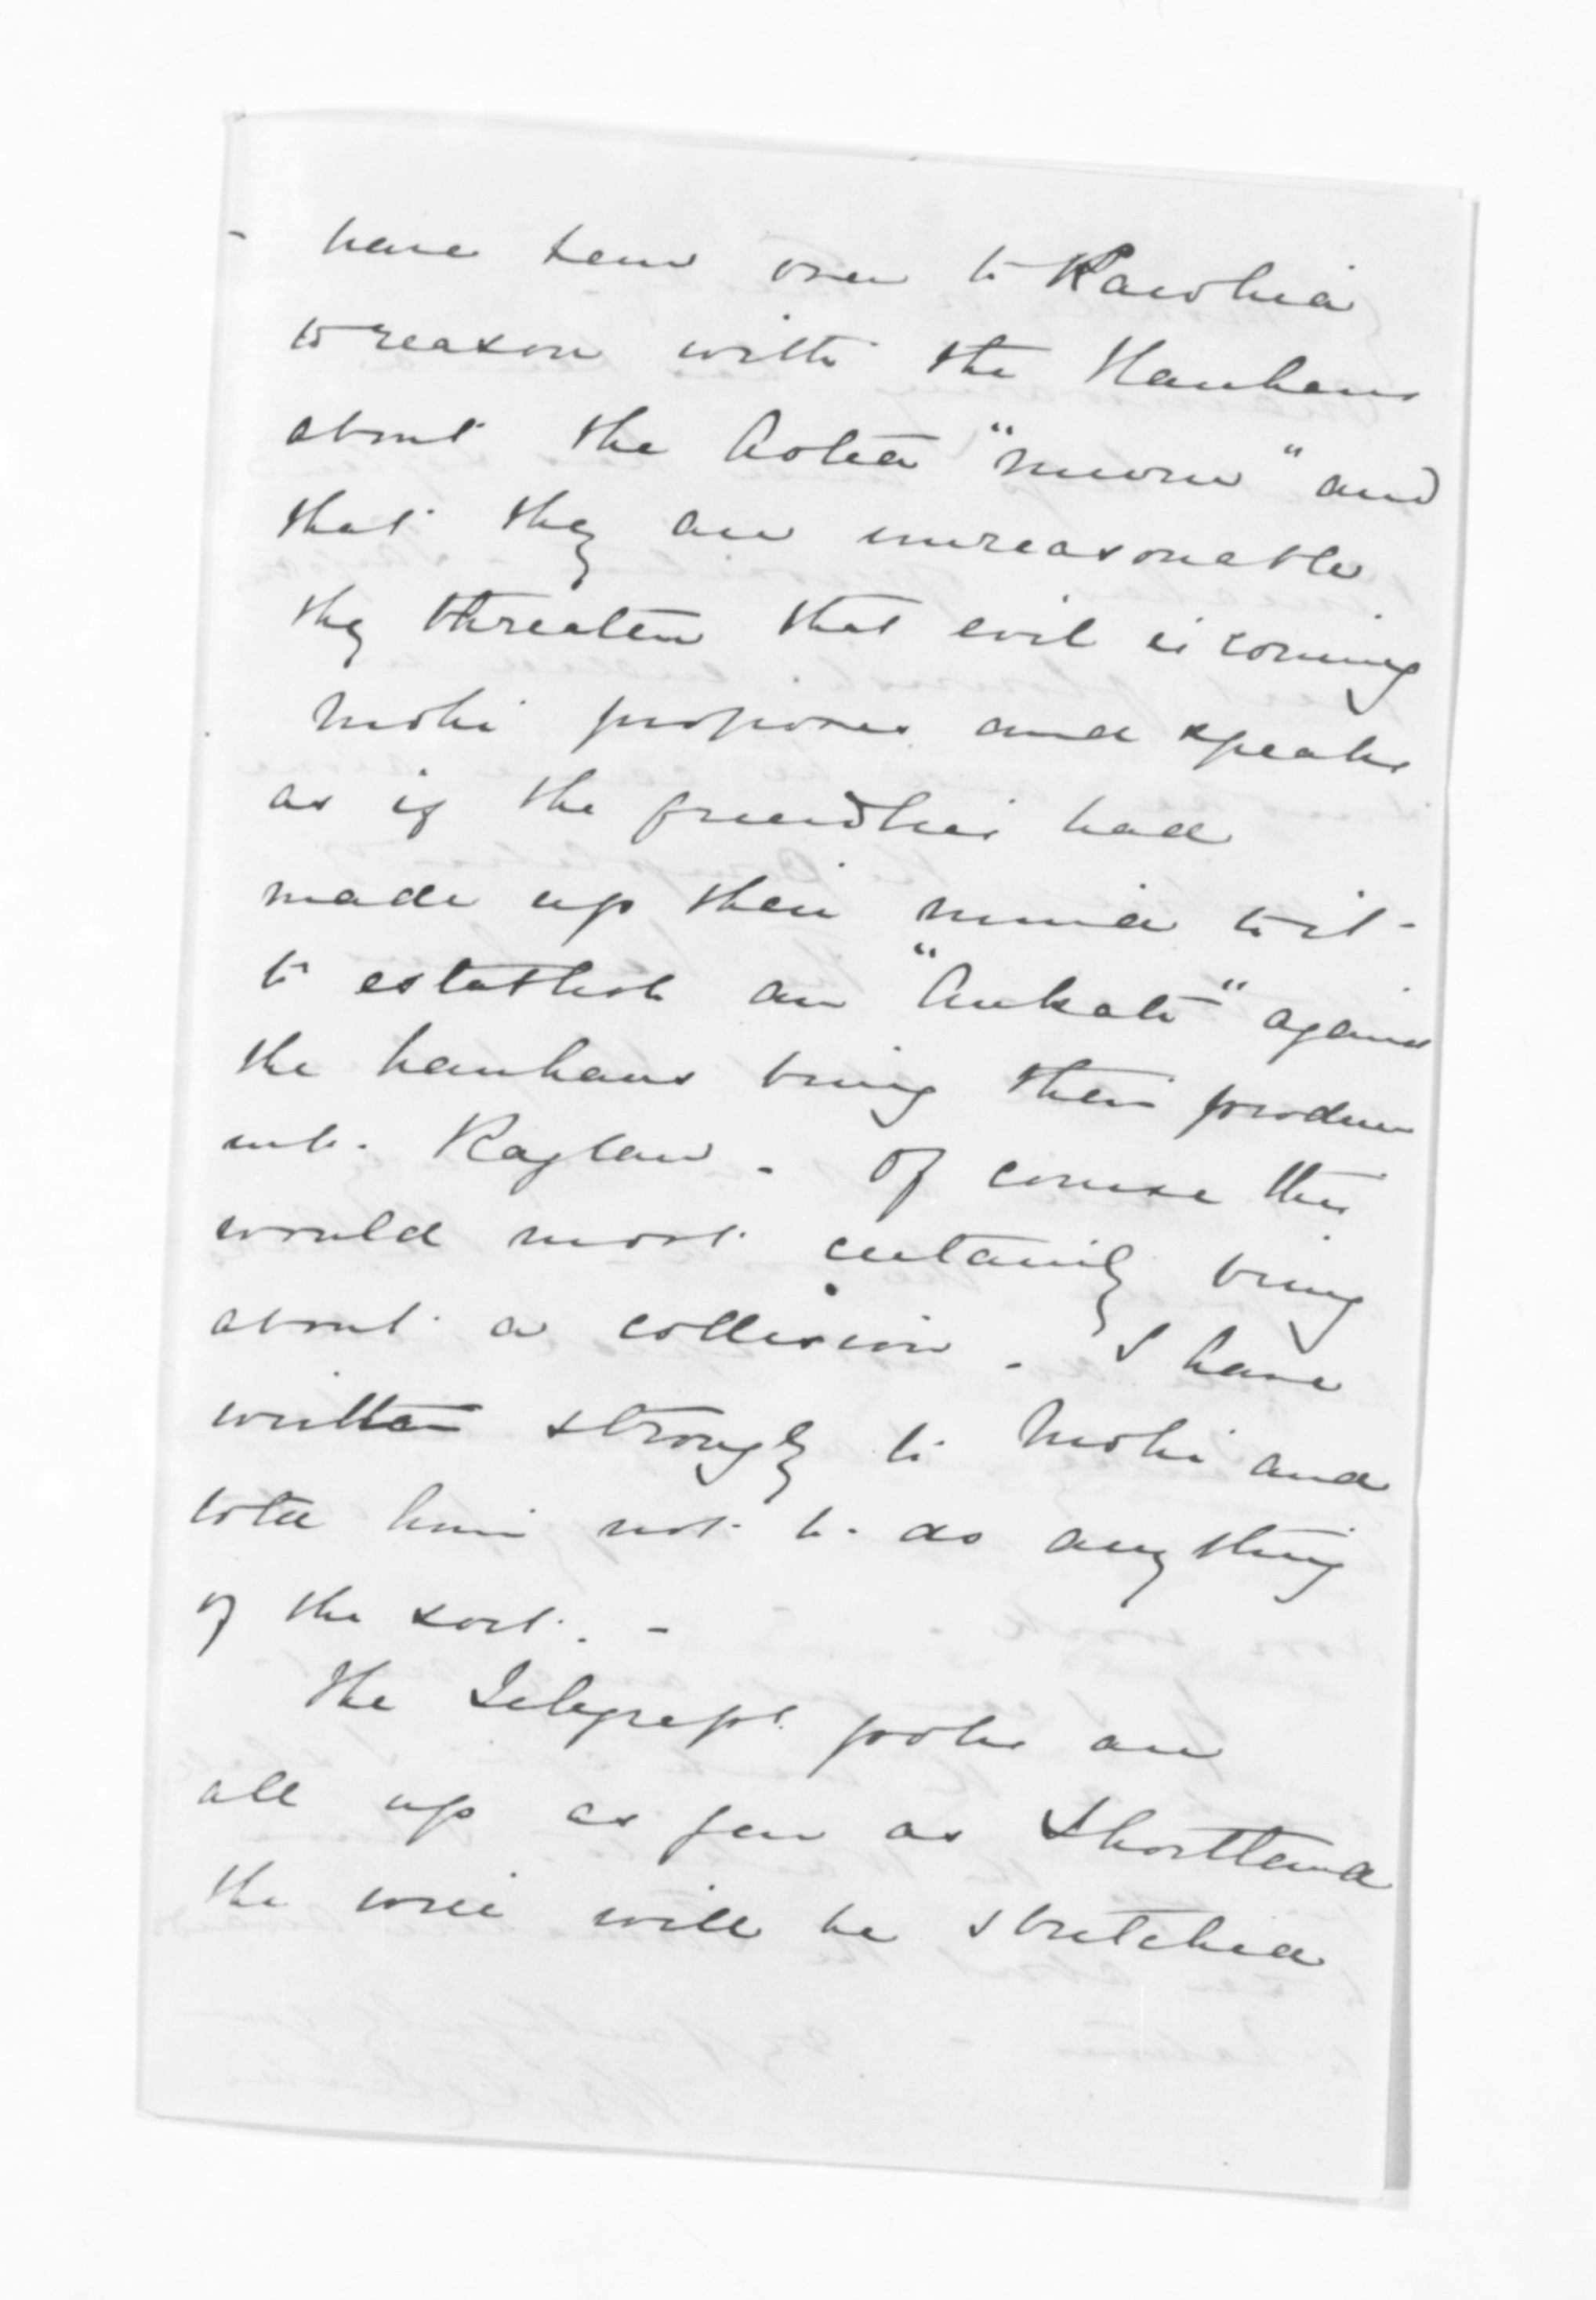 - have been over to Kawhia
to reason with the Hauhaus
about the Aotea "muru" and
that they are unreasonable
they threaten that evil is coming
Mohi proposes and speaks
as if the friendlies had
made up their mind to it -
to establish an "Aukati" against
the hauhaus bring their produce
into Raglan - Of course this
would most certainly bring
about a collision - I have
written strongly to Mohi and
told him not to do any thing
of the sort. -
The Telegraph poles are
all up as far as Shortland
the wire will be stretched